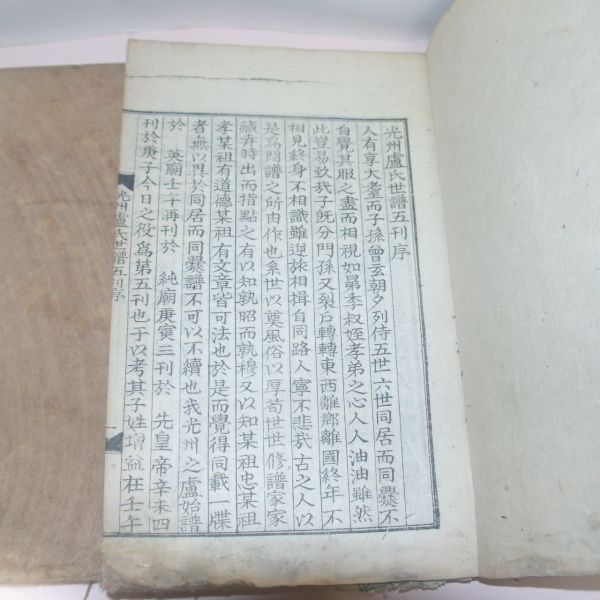 光州盧氏世譜五刊序
人有享大耋而子孫曾玄朝夕列侍五世六世同居而同爨不
自覺其服之盡而相視如昴季叔姪孝弟之心人人油油雖然
此豈易致我子旣分門孫又裂戶轉轉東西離鄕離國終年不
相見終身不相識雖逆旅相揖自同路人寧不悲哉古之人以
是爲悶譜之所由作也系世以奠風俗以厚苟世世修譜家家
藏弆時出而指點之有以知孰昭而孰穆又以知某祖忠某祖
孝某祖有道德某祖有文章皆可法也於是而覺得同載一牒
者無以異於同居而同爨譜不可以不續也我光州之盧始譜
於 英廟壬午再刊於 純廟庚寅三刊於 先皇帝辛未四
刊於庚子今日之役爲第五刊也于以考其子姓增益在壬午
光州盧氏世譜五刊序